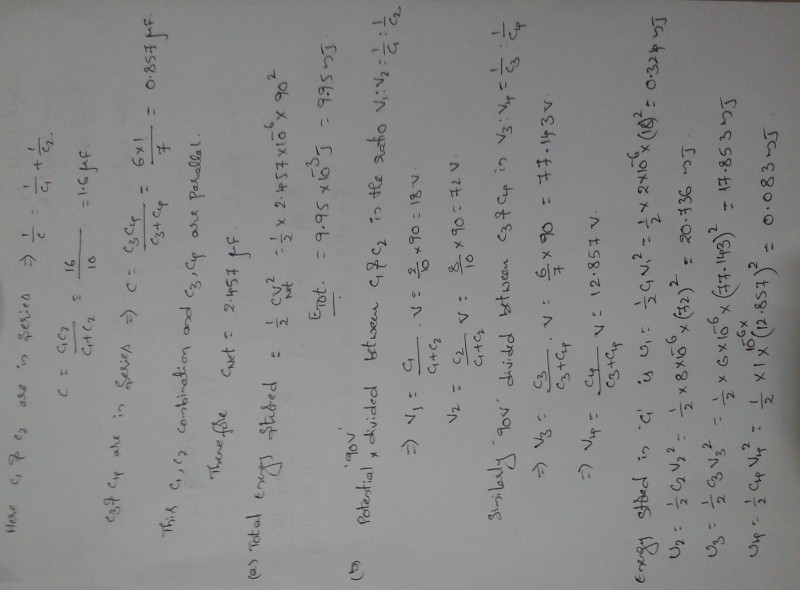 Here C₁ & C₂ are in series ⇒ 1/C = 1/C₁ + 1/C₂
C = C₁C₂/(C₁+C₂) = 16/10 = 1.6 μF.
C₃ & C₄ are in series ⇒ C = C₃C₄/(C₃+C₄) = 6×1/7 = 0.857 μF.
This C₁, C₂ combination and C₃, C₄ are parallel.
Therefore C_Net = 2.457 μF.
(a) Total energy stored = 1/2 CV²_Net = 1/2 × 2.457×10⁻⁶ × 90²
E_Tot. = 9.95 ×10⁻³ J = 9.95 mJ.
(b) Potential '90V' divided between C₁ & C₂ in the ratio V₁:V₂ = 1/C₁ : 1/C₂
⇒ V₁ = C₁/(C₁+C₂) . V = 2/10 × 90 = 18 V.
V₂ = C₂/(C₁+C₂) V = 8/10 × 90 = 72 V.
Similarly '90V' divided between C₃ & C₄ in V₃:V₄ = 1/C₃ : 1/C₄
⇒ V₃ = C₃/(C₃+C₄) . V = 6/7 × 90 = 77.143 V.
⇒ V₄ = C₄/(C₃+C₄) V = 12.857 V.
Energy stored in 'C₁' is U₁ = 1/2 C₁V₁² = 1/2 × 2×10⁻⁶ × (18)² = 0.324 mJ
U₂ = 1/2 C₂V₂² = 1/2 × 8×10⁻⁶ × (72)² = 20.736 mJ.
U₃ = 1/2 C₃V₃² = 1/2 × 6×10⁻⁶ × (77.143)² = 17.853 mJ
U₄ = 1/2 C₄V₄² = 1/2 × 1 × 10⁻⁶ × (12.857)² = 0.083 mJ